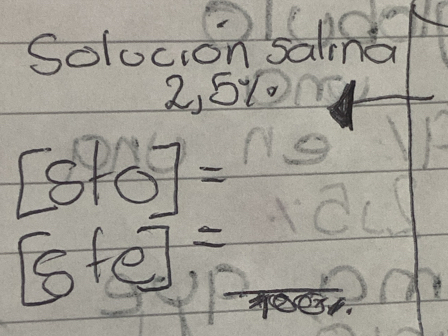 Solución salina
2,5%
[sto] =
[ste] =